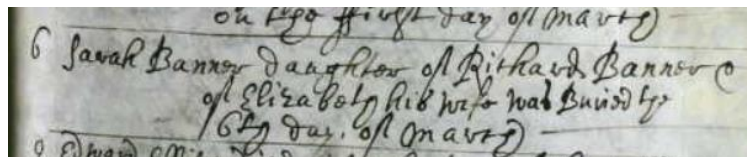 on the ffirst day of March
6 Sarah Banner daughter of Richard Banner &
of Elizabeth his wife was Buried the
6th day of March
9 Edward